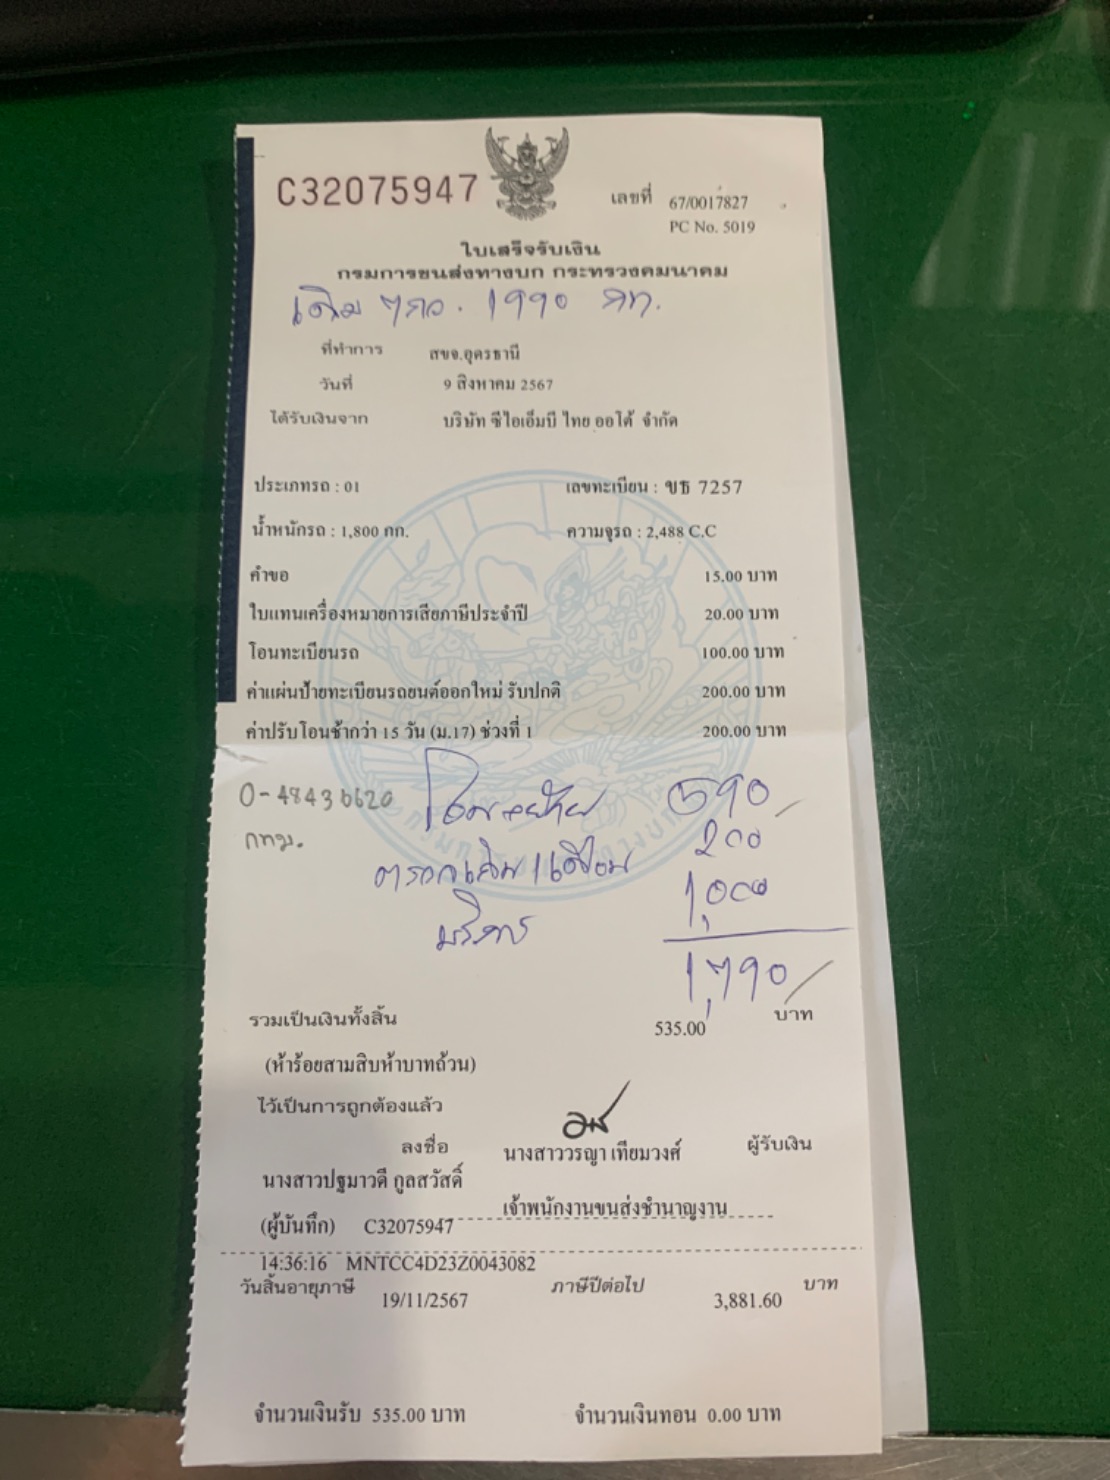 C32075947
เลขที่ 67/0017827
PC No. 5019
ใบเสร็จรับเงิน
กรมการขนส่งทางบก กระทรวงคมนาคม
เดิม 1990 กท.
ที่ทำการ สขจ.อุดรธานี
วันที่ 9 สิงหาคม 2567
ได้รับเงินจาก บริษัท ซีไอเอ็มบี ไทย ออโต้ จำกัด
ประเภทรถ : 01 เลขทะเบียน : ขธ 7257
น้ำหนักรถ : 1,800 กก. ความจุรถ : 2,488 C.C
คำขอ 15.00 บาท
ใบแทนเครื่องหมายการเสียภาษีประจำปี 20.00 บาท
โอนทะเบียนรถ 100.00 บาท
ค่าแผ่นป้ายทะเบียนรถยนต์ออกใหม่ รับปกติ 200.00 บาท
ค่าปรับโอนช้ากว่า 15 วัน (ม.17) ช่วงที่ 1 200.00 บาท
0-48436620
กทม.
590
200
บริการ 1,000
1,790
รวมเป็นเงินทั้งสิ้น 535.00 บาท
(ห้าร้อยสามสิบห้าบาทถ้วน)
ไว้เป็นการถูกต้องแล้ว
ลงชื่อ นางสาววรญา เทียมวงศ์ ผู้รับเงิน
นางสาวปฐมาวดี กูลสวัสดิ์
เจ้าพนักงานขนส่งชำนาญงาน
(ผู้บันทึก) C32075947
14:36:16 MNTCC4D23Z0043082
วันสิ้นอายุภาษี 19/11/2567 ภาษีปีต่อไป 3,881.60 บาท
จำนวนเงินรับ 535.00 บาท จำนวนเงินทอน 0.00 บาท